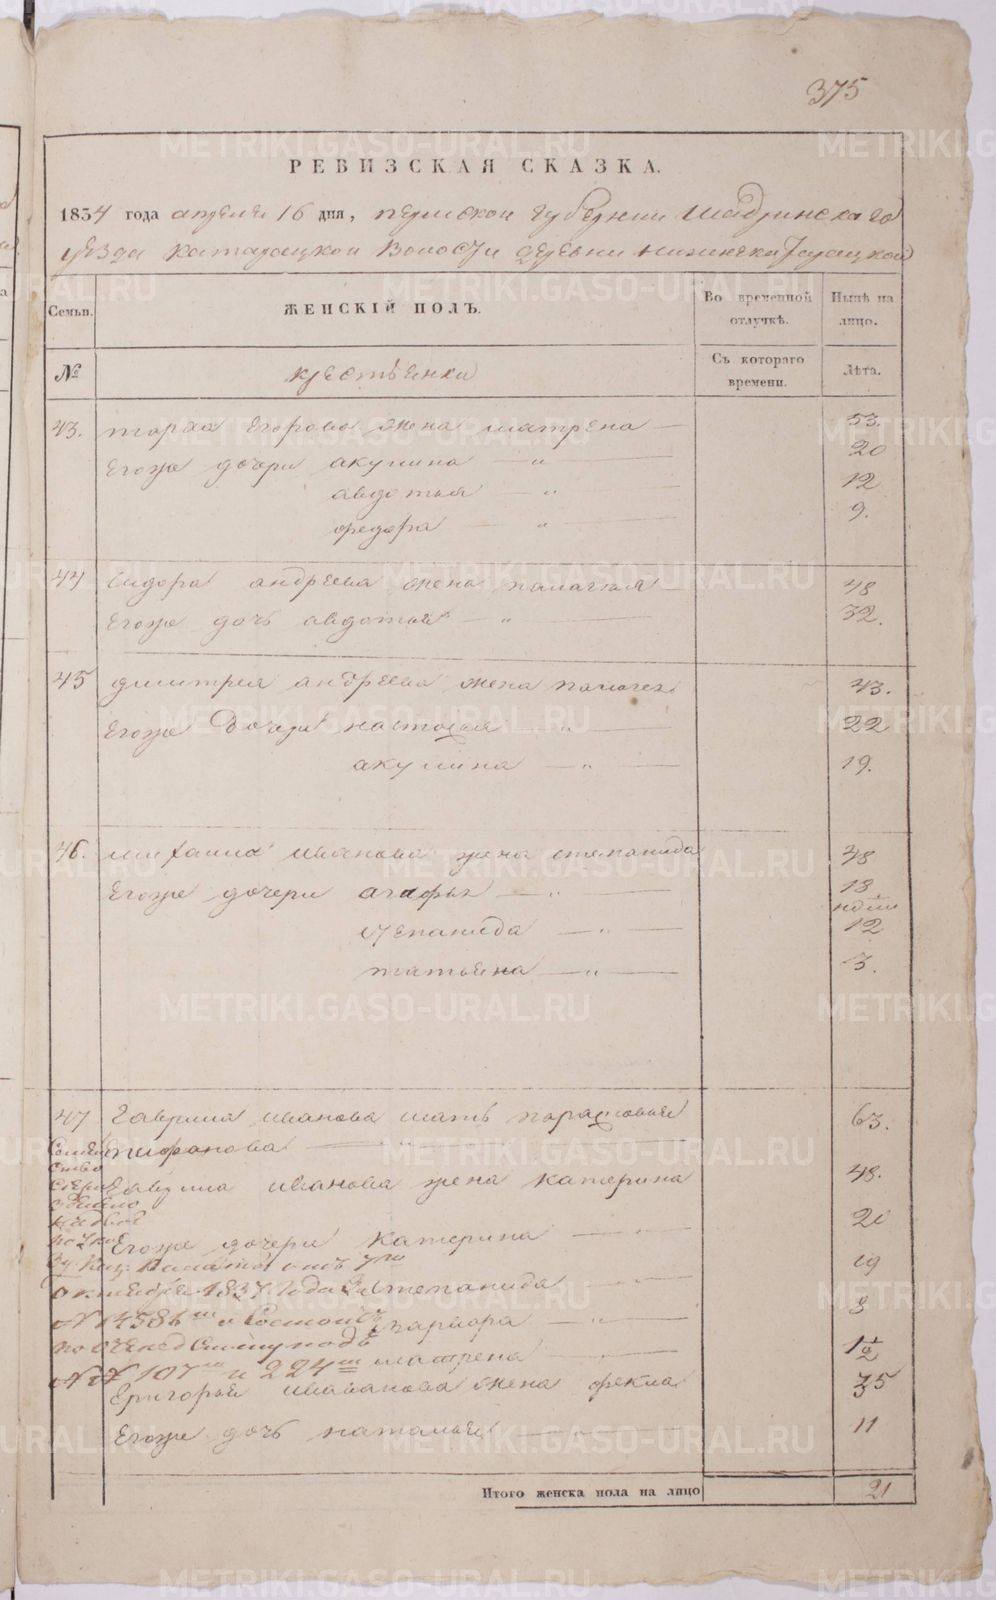 375
РЕВИЗСКАЯ СКАЗКА.
1834 года апреля 16 дня, пермской губернии шадринскаго
уезда катарацкой волости деревни нижнекатарацкой
Семьи. ЖЕНСКІЙ ПОЛЪ. Во временной отлучкѣ. Нынѣ на лицо.
№ крестьянки Съ котораго времени. Лѣта.
43. тараха Егорова жена матрена 53.
Егоже дочери акулина 20
авдотья 12
федора 9.
44 Сидора андреева жена палагея 48
Егоже дочь авдотья 32.
45 дмитрея андреева жена палагея 43.
Егоже Дочери настасья 22
акулина 19.
46. михаила иванова жена степанида 48
Егоже дочери агафья 18
недели
степанида 12
татьяна 3.
47 Гаврила иванова мать парасковья 63.
Семей
ство
Гаврила иванова жена катерина 48.
Егоже дочери Катерина 20
октября 1837 года За степанида 19
№ 14586 и Состоитъ варвара 8
матрена 1 1/2
№№ 107 и 224
Григорья иванова жена фекла 35
Егоже дочь наталья 11
Итого женска пола на лицо 21
METRIKI.GASO-URAL.RU